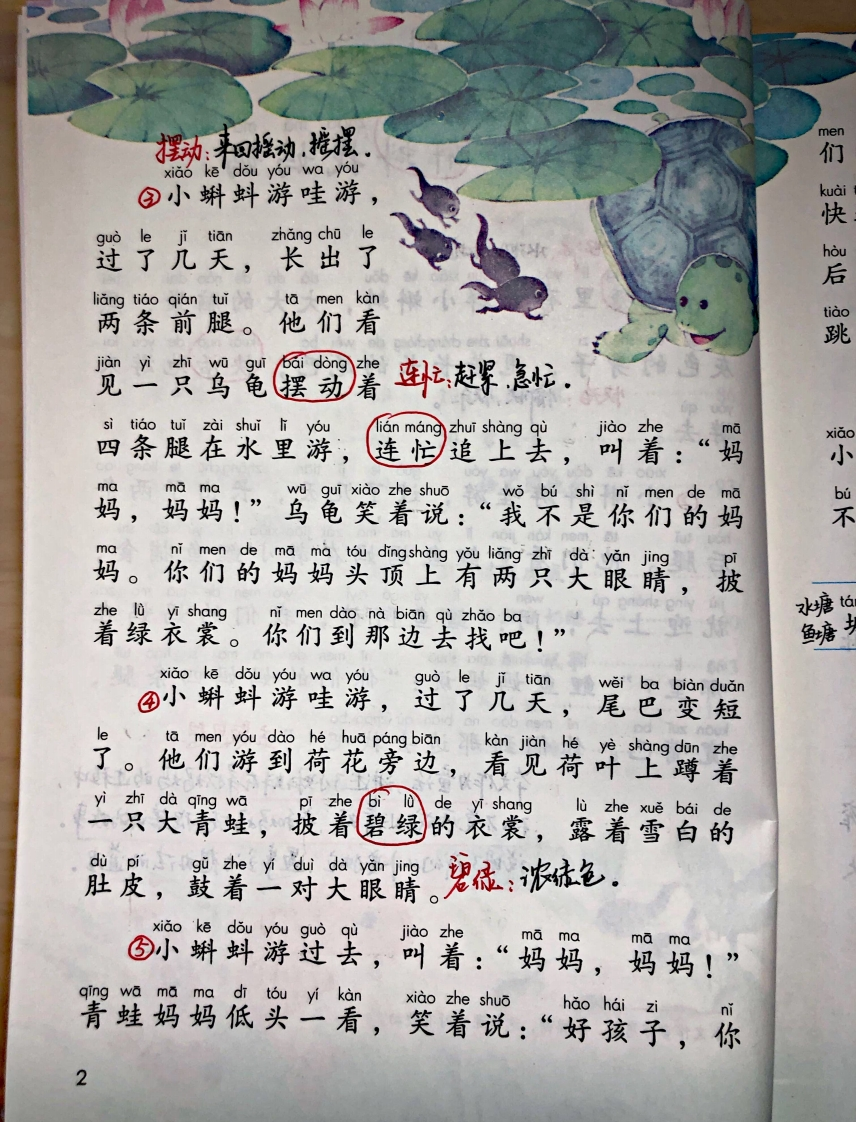 摆动：来回摇动，摇摆。
xiǎo kē dǒu yóu wa yóu
③小蝌蚪游哇游，
guò le jǐ tiān zhǎng chū le
过了几天，长出了
liǎng tiáo qián tuǐ tā men kàn
两条前腿。他们看
jiàn yì zhī wū guī bǎi dòng zhe
见一只乌龟摆动着
连忙：赶紧，急忙。
sì tiáo tuǐ zài shuǐ lǐ yóu lián máng zhuī shàng qù jiào zhe mā
四条腿在水里游，连忙追上去，叫着：“妈
ma mā ma wū guī xiào zhe shuō wǒ bú shì nǐ men de mā
妈，妈妈！”乌龟笑着说：“我不是你们的妈
ma nǐ men de mā mā tóu dǐng shàng yǒu liǎng zhī dà yǎn jing pī
妈。你们的妈妈头顶上有两只大眼睛，披
zhe lǜ yī shang nǐ men dào nà biān qù zhǎo ba
着绿衣裳。你们到那边去找吧！”
xiǎo kē dǒu yóu wa yóu guò le jǐ tiān wěi ba biàn duǎn
④小蝌蚪游哇游，过了几天，尾巴变短
le tā men yóu dào hé huā páng biān kàn jiàn hé yè shàng dūn zhe
了。他们游到荷花旁边，看见荷叶上蹲着
yì zhī dà qīng wā pī zhe bì lǜ de yī shang lù zhe xuě bái de
一只大青蛙，披着碧绿的衣裳，露着雪白的
dù pí gǔ zhe yí duì dà yǎn jing
肚皮，鼓着一对大眼睛。
碧绿：浓绿色。
xiǎo kē dǒu yóu guò qù jiào zhe mā ma mā ma
⑤小蝌蚪游过去，叫着：“妈妈，妈妈！”
qīng wā mā ma dī tóu yí kàn xiào zhe shuō hǎo hái zi nǐ
青蛙妈妈低头一看，笑着说：“好孩子，你
2
men
们
kuài
快
hòu
后
tiào
跳
xiǎo
小
bú
不
水塘
鱼塘